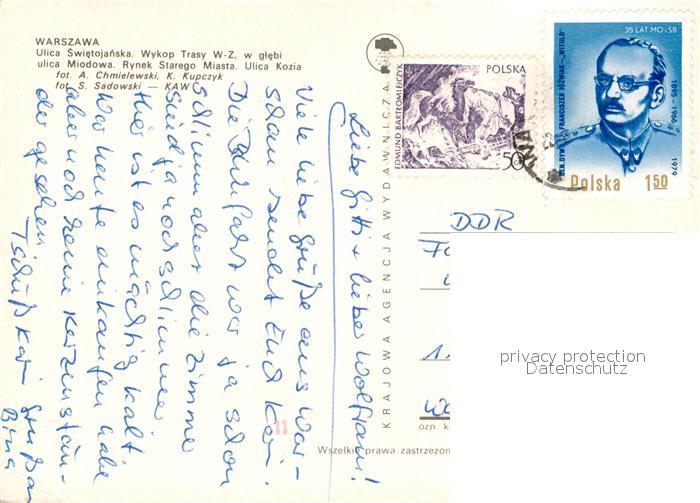 WARSZAWA
Ulica Świętojańska. Wykop Trasy W-Z, w głębi
ulica Miodowa. Rynek Starego Miasta. Ulica Kozia
fot. A. Chmielewski, K. Kupczyk
fot. S. Sadowski — KAW
Liebe Gitti + lieber Wolfram!
Viele liebe Grüße aus War-
schau sendet Euch Kari.
Die Hinfahrt war ja schon
schlimm aber die Zimmer
sind ja noch schlimmer
Hier ist es mächtig kalt.
War heute einkaufen habe
aber noch keine Kerzenstän-
der gesehen
Tschüß Kari
KRAJOWA AGENCJA WYDAWNICZA
EDMUND BARTŁOMIEJCZYK
POLSKA
50
35 LAT MO i SB
GEN. DYW. FRANCISZEK JÓŹWIAK-„WITOLD"
1895-1966
1979
Polska 1 50
DDR
11
privacy protection
Datenschutz
ozn. k
Wszelkie prawa zastrzeżon